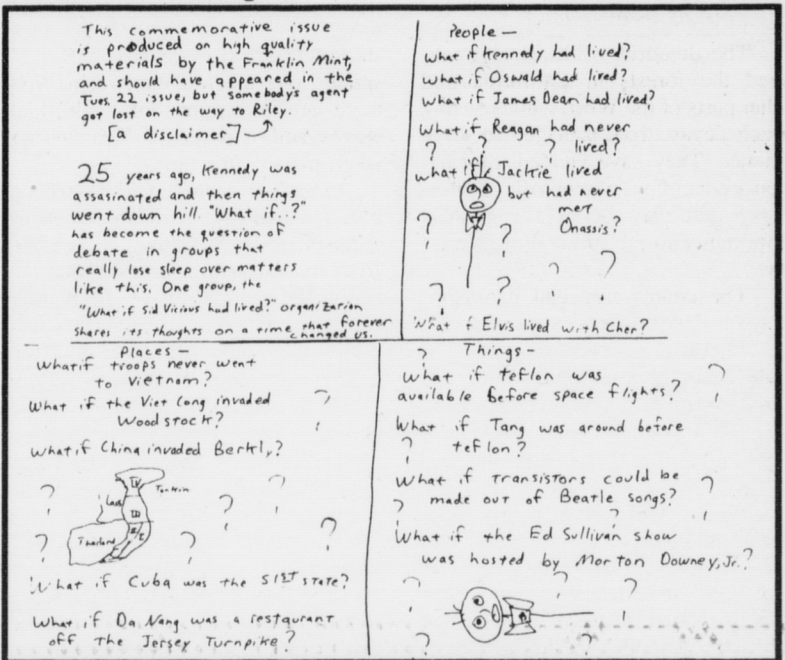 This commemorative issue
is produced on high quality
materials by the Franklin Mint,
and should have appeared in the
Tues. 22 issue, but somebody's agent
got lost on the way to Riley.
[a disclaimer]
25 years ago, Kennedy was
assasinated and then things
went down hill. "What if..?"
has become the question of
debate in groups that
really lose sleep over matters
like this. One group, the
"What if Sid Vicious had lived?" organization
shares its thoughts on a time that forever
changed us.
People —
What if Kennedy had lived?
What if Oswald had lived?
What if James Dean had lived?
What if Reagan had never
? ? ? lived?
what if Jackie lived
but had never
met
Onassis?
? ? ?
? ?
What if Elvis lived with Cher?
Places —
What if troops never went
to Vietnam?
What if the Viet Cong invaded
Woodstock?
What if China invaded Berkly?
Tonkin
Laos
III
Thailand
What if Cuba was the 51st state?
What if Da Nang was a restaurant
off the Jersey Turnpike?
? Things —
What if teflon was
available before space flights?
What if Tang was around before
? teflon?
What if transistors could be
made out of Beatle songs?
What if the Ed Sullivan show
was hosted by Morton Downey, Jr.?